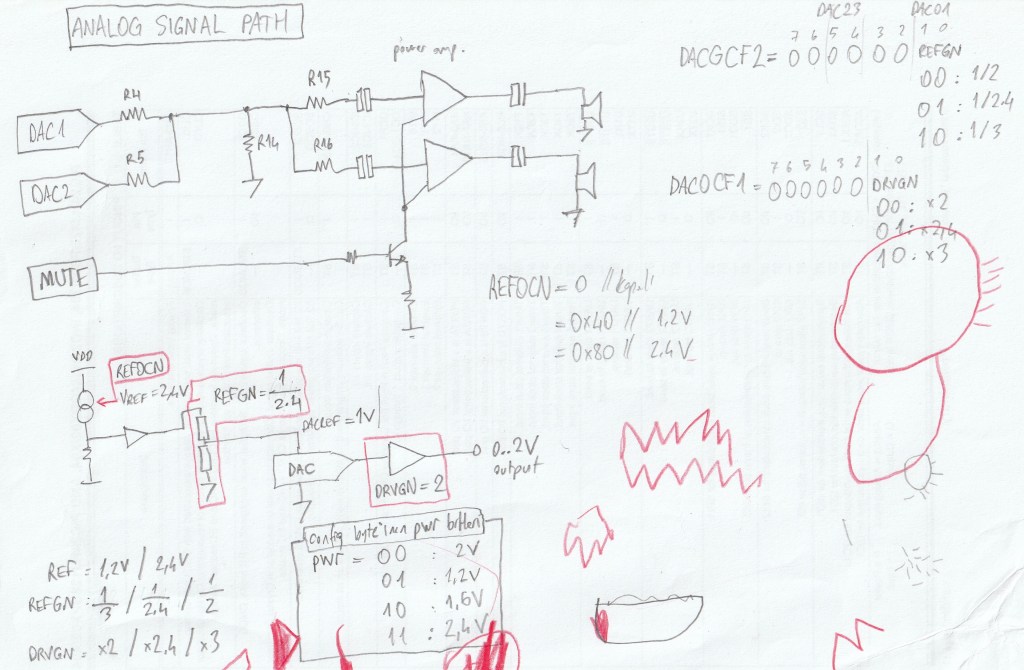 ANALOG SIGNAL PATH
power amp.
R4
R15
DAC1
R14
R5
R16
DAC2
MUTE
DAC23 DAC01
7 6 5 4 3 2 1 0
DACGCF2 = 0 0 0 0 0 0 REFGN
00 : 1/2
01 : 1/2.4
10 : 1/3
7 6 5 4 3 2 1 0
DAC0CF1 = 0 0 0 0 0 0 DRVGN
00 : x2
01 : x2,4
10 : x3
REFDCN = 0 //
= 0x40 // 1,2V
= 0x80 // 2.4V
VDD
REFDCN
VREF = 2,4V
REFGN = 1/2.4
DACREF = 1V
DAC
DRVGN = 2
0..2V
output
config byte'ının pwr bitleri
PWR = 00 : 2V
01 : 1,2V
10 : 1,6V
11 : 2,4V
REF = 1,2V / 2,4V
REFGN : 1/3 / 1/2,4 / 1/2
DRVGN = x2 / x2,4 / x3